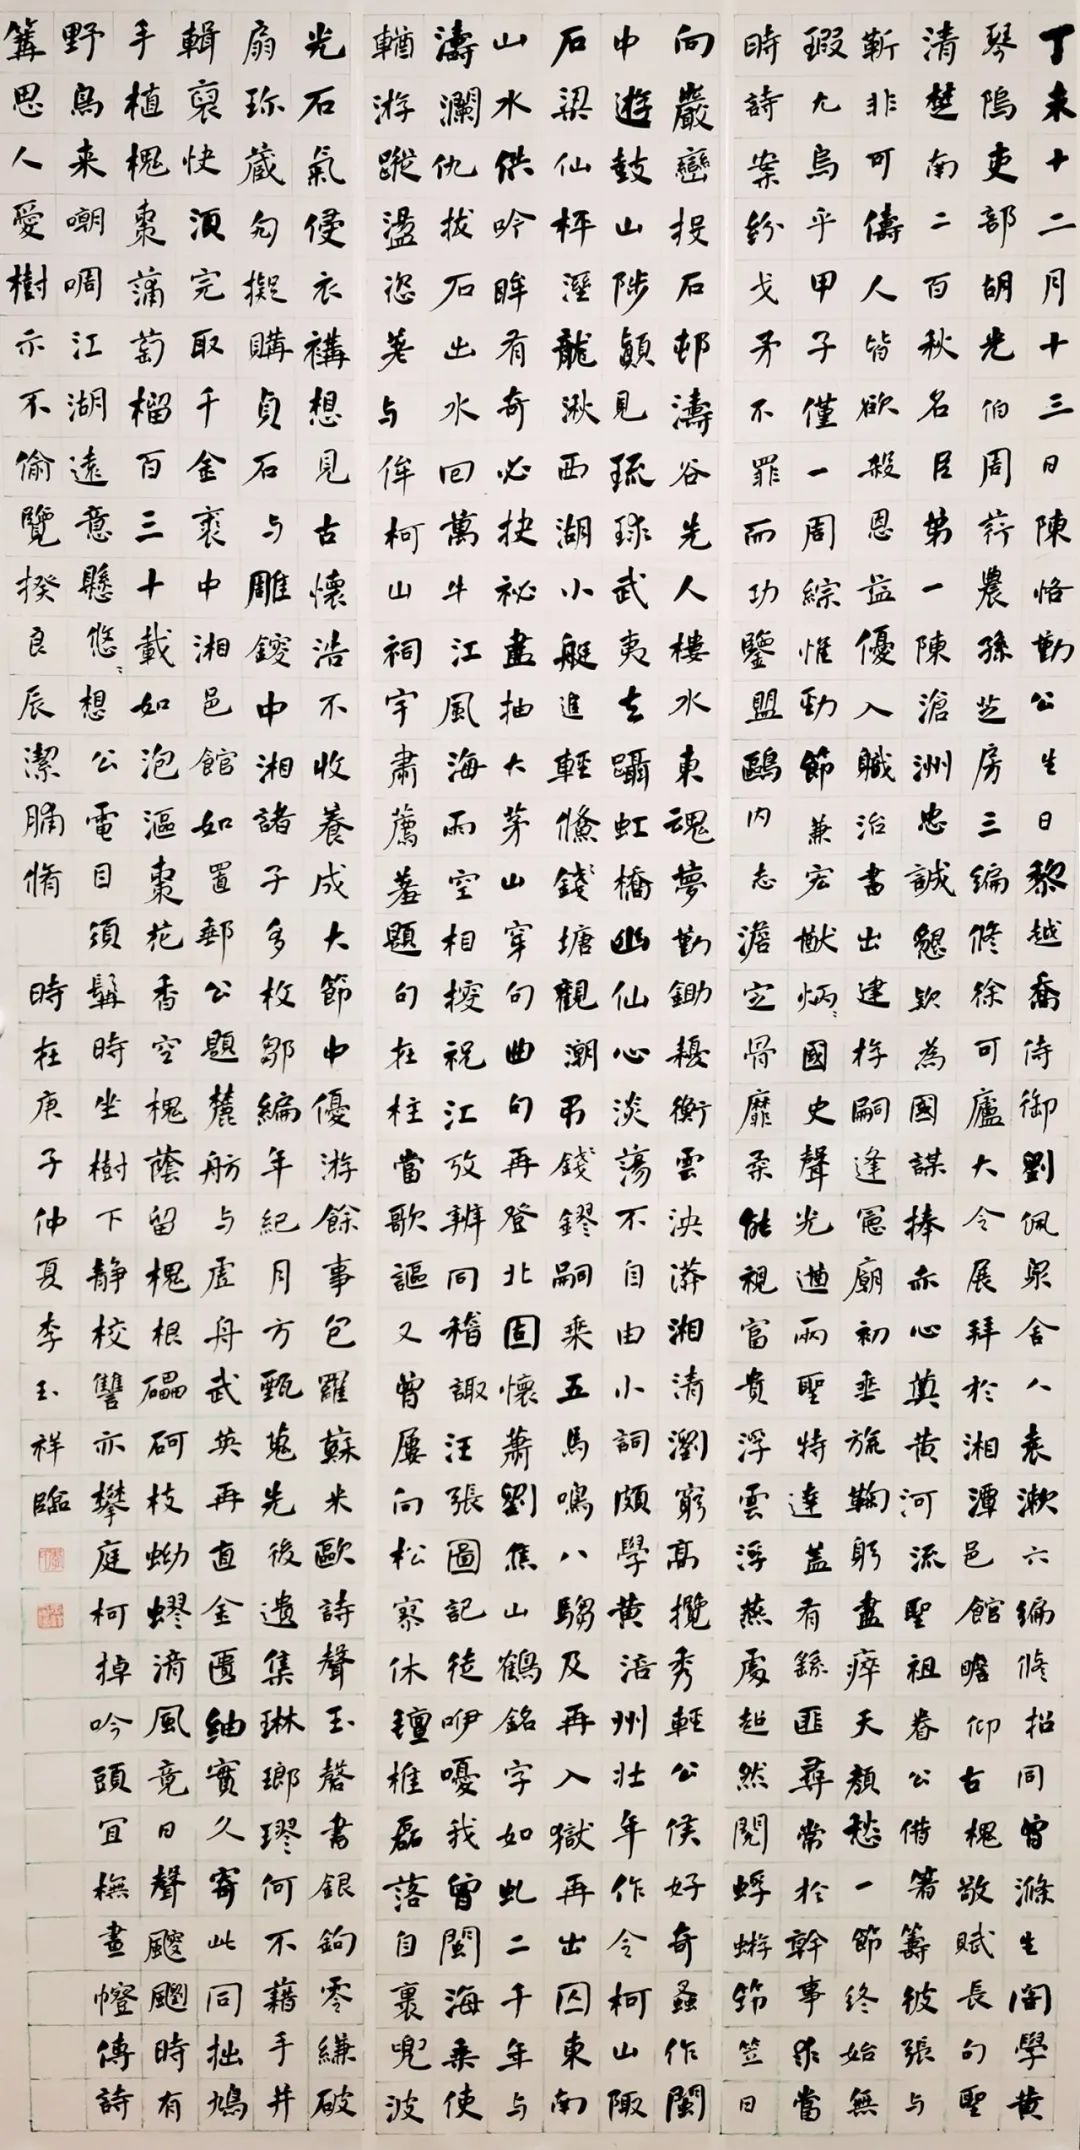 丁未十二月十三日陳恪勤公生日黎越喬侍御劉佩泉舍人袁漱六編修招同曾滌生閣學黃
琴隖吏部胡光伯周荇農孫芝房三編修徐可廬大令展拜於湘潭邑館瞻仰古槐敬賦長句聖
清楚南二百秋名臣第一陳滄洲忠誠懇款為國謀捧亦心奠黃河流聖祖眷公借箸籌彼張与
靳非可儔人皆欲殺恩益優入職治書出建斿嗣逢憲廟初垂旒鞠躬盡瘁天顏愁一節終始無
瑕尤烏乎甲子僅一周綜惟勁節兼宏猷炳〻國史聲光遒兩聖特達蓋有繇匪尋常於幹事求當
時詩案紛戈矛不罪而功鑒盟鷗內志澹定骨靡柔能視富貴浮雲浮燕處超然閱蜉蝣節笠日
向巖巒投石邨濤谷先人樓水東魂夢勤鋤耰衡雲泱漭湘清瀏窮高攬秀輕公侯好奇蚤作閩
中遊鼓山陟顛見琉球武夷去躡虹橋幽仙心淡蕩不自由小詞頗學黃涪州壯年作令柯山陬
石梁仙枰溼龍湫西湖小艇進輕鯈錢塘觀潮弔錢鏐嗣乘五馬鳴八騶及再入獄再出囚東南
山水供吟眸有奇必抉祕盡抽大茅山穿句曲句再登北固懷蕭劉焦山鶴銘字如虬二千年与
濤瀾仇拔石出水回萬牛江風海雨空相樛祝江攷辨同稽諏汪張圖記徒咿嚘我曾閩海乘使
輶游蹤盪恣与侔柯山祠宇肅薦羞題句在柱當歌謳又曾屢向松寥休鐘椎磊落自裹兜波
光石氣侵衣褠想見古懷浩不收養成大節中優游餘事包羅蘇米歐詩聲玉磬書銀鉤零縑破
扇珍藏匄擬購貞石与雕鎪中湘諸子多枚鄒編年紀月方甄蒐先後遺集琳瑯璆何不藉手并
輯裒快須完取千金裘中湘邑館如置郵公題麓舫与虛舟武英再直金匱紬實久寄此同拙鳩
手植槐棗蒲萄榴百三十載如泡漚棗花香空槐蔭留槐根礧砢枝蚴蟉清風竟日聲颼飀時有
野鳥来嘲啁江湖遠意懸悠〻想公電目須髯時坐樹下静校讐亦攀庭柯掉吟頭宜橅畫幢傳詩
篝思人愛樹示不偷覽揆良辰潔脯脩 時在庚子仲夏李玉祥臨